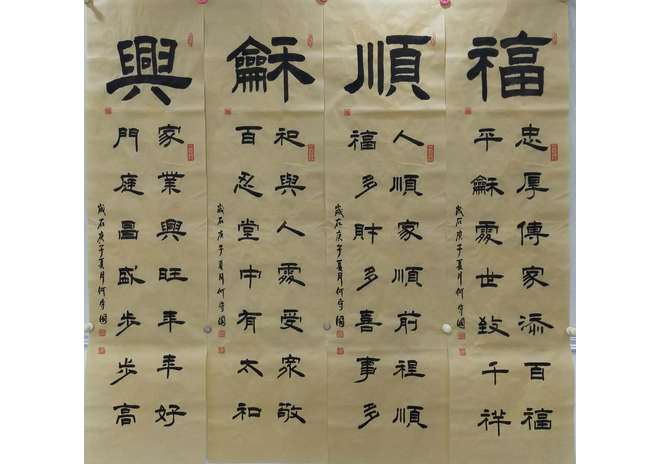 福
忠厚傳家添百福
平龢處世致千祥
歲在庚子夏月何守國
順
人順家順前程順
福多財多喜事多
歲在庚子夏月何守國
龢
礼與人處受衆敬
百忍堂中有太和
歲在庚子夏月何守國
興
家業興旺年年好
門庭昌盛步步高
歲在庚子夏月何守國